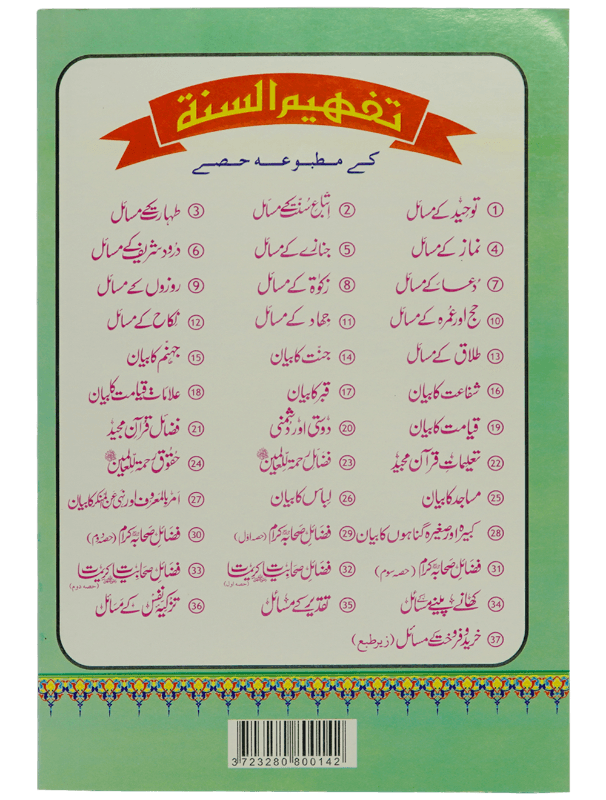 تفہیم السنۃ
کے مطبوعہ حصے
① توحید کے مسائل ② اتباع سنت کے مسائل ③ طہارت کے مسائل
④ نماز کے مسائل ⑤ جنازے کے مسائل ⑥ درود شریف کے مسائل
⑦ دعا کے مسائل ⑧ زکوٰۃ کے مسائل ⑨ روزوں کے مسائل
⑩ حج اور عمرہ کے مسائل ⑪ جہاد کے مسائل ⑫ نکاح کے مسائل
⑬ طلاق کے مسائل ⑭ جنت کا بیان ⑮ جہنم کا بیان
⑯ شفاعت کا بیان ⑰ قبر کا بیان ⑱ علامات قیامت کا بیان
⑲ قیامت کا بیان ⑳ دوستی اور دشمنی ㉑ فضائل قرآن مجید
㉒ تعلیمات قرآن مجید ㉓ فضائل رحمۃ للعالمین ﷺ ㉔ حقوق رحمۃ للعالمین ﷺ
㉕ مساجد کا بیان ㉖ لباس کا بیان ㉗ امر بالمعروف اور نہی عن المنکر کا بیان
㉘ کبیرہ اور صغیرہ گناہوں کا بیان ㉙ فضائل صحابہ کرام (حصہ اول) ㉚ فضائل صحابہ کرام (حصہ دوم)
㉛ فضائل صحابہ کرام (حصہ سوم) ㉜ فضائل صحابیات (حصہ اول) ㉝ فضائل صحابیات (حصہ دوم)
㉞ کھانے پینے کے مسائل ㉟ تقدیر کے مسائل ㊱ تزکیہ نفس کے مسائل
㊲ خرید و فروخت کے مسائل (زیر طبع)
3723280 800142